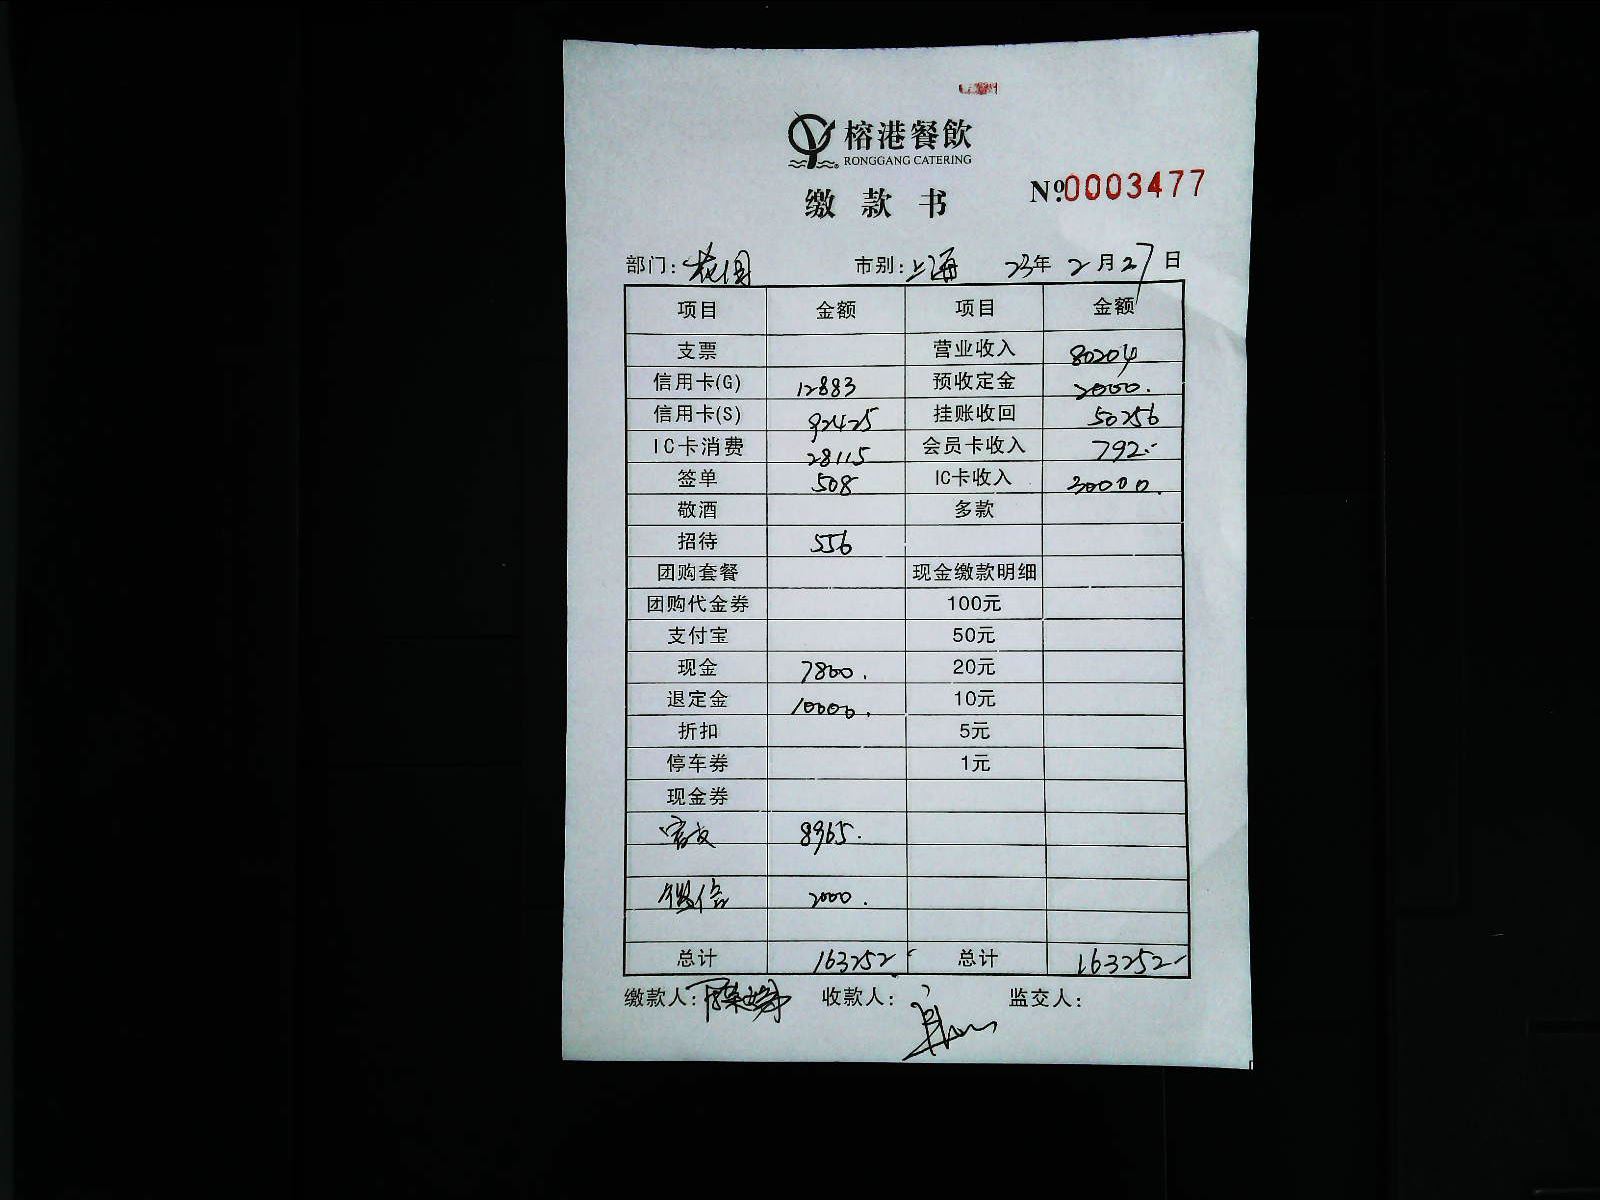 榕港餐飲
RONGGANG CATERING
缴款书
№0003477
部门：花园 市别：上海 23年2月27日
项目 金额 项目 金额
支票 营业收入 80204
信用卡(G) 12883 预收定金 2000.
信用卡(S) 92425 挂账收回 50256
IC卡消费 28115 会员卡收入 792.-
签单 508 IC卡收入 30000.
敬酒 多款
招待 556
团购套餐 现金缴款明细
团购代金券 100元
支付宝 50元
现金 7800. 20元
退定金 10000. 10元
折扣 5元
停车券 1元
现金券
8965.
微信 2000.
总计 163252- 总计 163252-
缴款人： 收款人： 监交人：